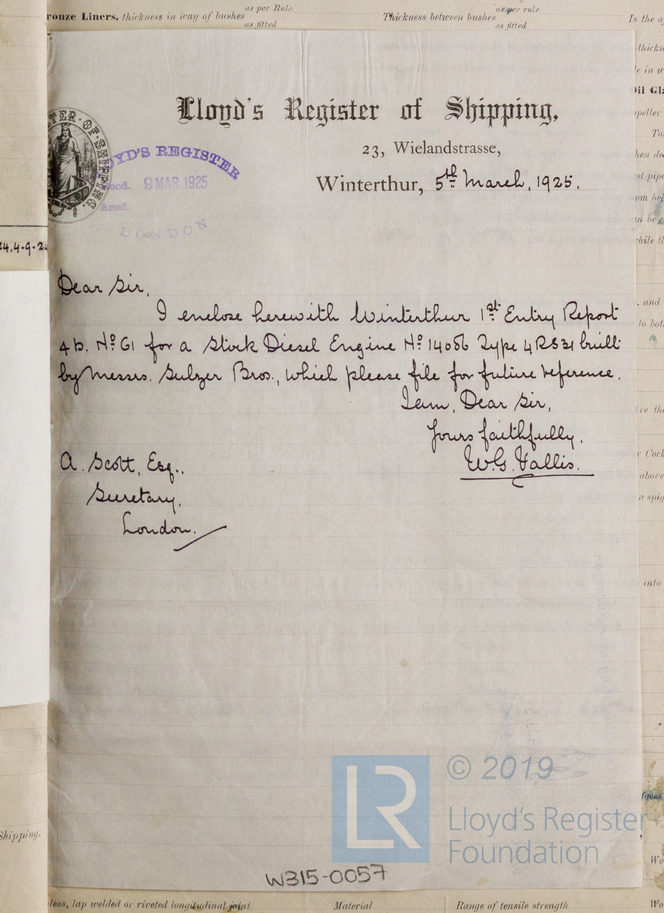 Bronze Liners, thickness in way of bushes as per Rule as fitted
Thickness between bushes as per rule as fitted
Is the a
Lloyd's Register of Shipping,
23, Wielandstrasse,
Winterthur, 5th March, 1925.
LOYD'S REGISTER
9 MAR 1925
LONDON
24,4-9-2
Dear Sir,
I enclose herewith Winterthur 1st Entry Report
4b. No 61 for a Stock Diesel Engine No 14056 Type 4RS31 built
by Messrs. Sulzer Bros., which please file for future reference.
I am, Dear Sir,
Yours faithfully,
W.G. Vallis.
A. Scott, Esq.,
Secretary,
London.
© 2019
LR
Lloyd's Register
Foundation
W315-0057
Shipping.
less, lap welded or riveted longitudinal joint
Material
Range of tensile strength